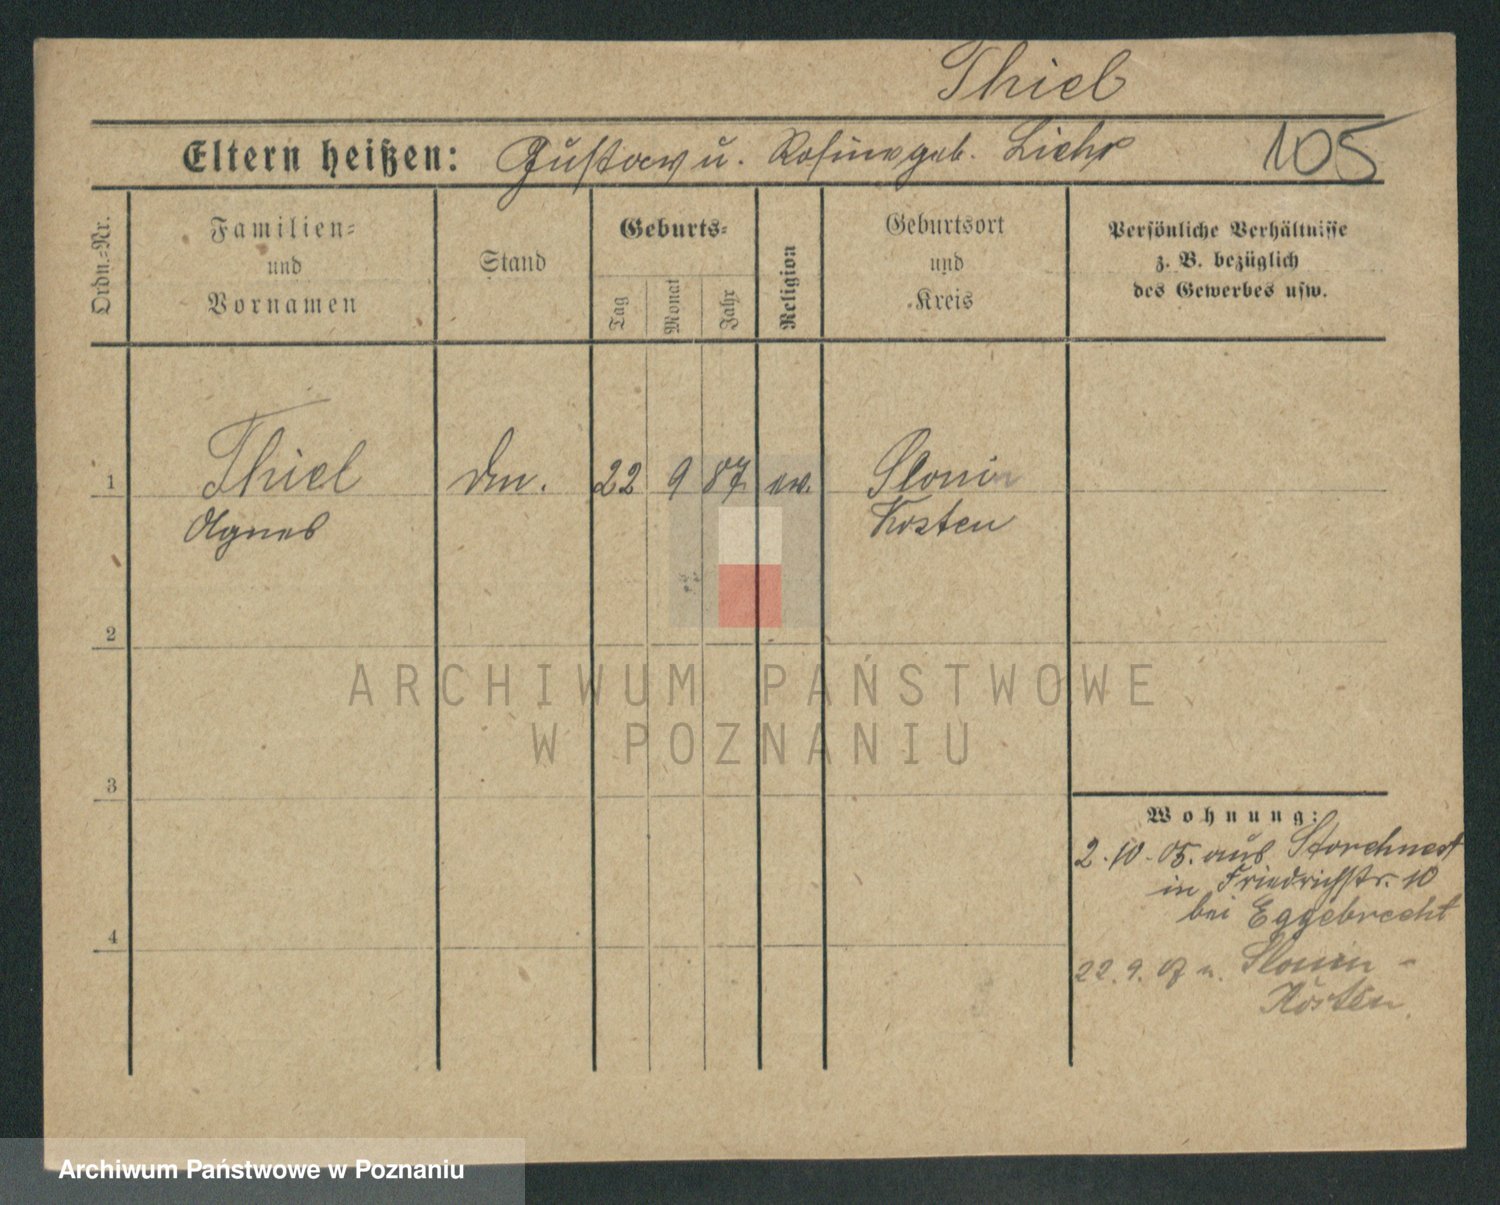 Thiel
Eltern heißen: Gustav u. Rosine geb. Liehr 105
Ordn.=Nr.
Familien=
und
Vornamen
Stand
Geburts=
Tag
Monat
Jahr
Religion
Geburtsort
und
Kreis
Persönliche Verhältnisse
z. B. bezüglich
des Gewerbes usw.
1 Thiel 22 9 87 ev. Slonin
Agnes Kosten
2
ARCHIWUM PAŃSTWOWE
W POZNANIU
3
Wohnung:
2.10.05. aus Storchnest
in Friedrichstr. 10
bei Eggebrecht
4
22.9.07 n. Slonin -
Kosten
Archiwum Państwowe w Poznaniu